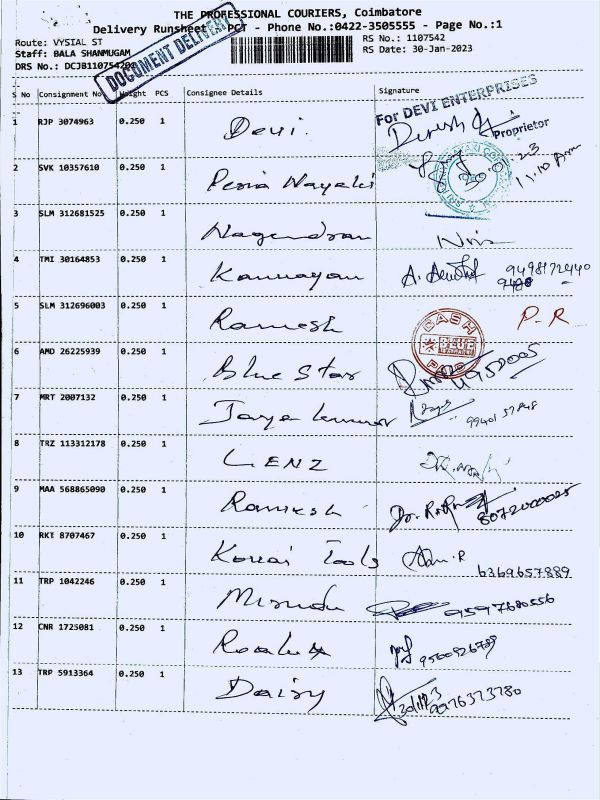 THE PROFESSIONAL COURIERS, Coimbatore
Delivery Runsheet - PCT - Phone No.:0422-3505555 - Page No.:1
Route: VYSIAL ST
RS No.: 1107542
Staff: BALA SHANMUGAM
RS Date: 30-Jan-2023
DRS No.: DCJB11075420
DOCUMENT DELIVERY
S No Consignment No Weight PCS Consignee Details Signature
For DEVI ENTERPRISES
1 RJP 3074963 0.250 1 Devi.
Proprietor
30.01.23
11.10 Am
2 SVK 10357610 0.250 1 Peria Nayaki
3 SLM 312681525 0.250 1 Nagendran
4 TMI 30164853 0.250 1 Kannayan 9498172440
5 SLM 312696003 0.250 1 Ramesh P-R
CASH
BLUE
PAID
6 AMD 26225939 0.250 1 Blue Star
7 MRT 2007132 0.250 1 Jaya kumar
8 TRZ 113312178 0.250 1 LENZ
9 MAA 568865090 0.250 1 Ramesh
10 RKT 8707467 0.250 1 Kovai Tools 6369657889
11 TRP 1042246 0.250 1 Mirudu 9597680556
12 CNR 1725081 0.250 1
13 TRP 5913364 0.250 1 Daisy 9976373780